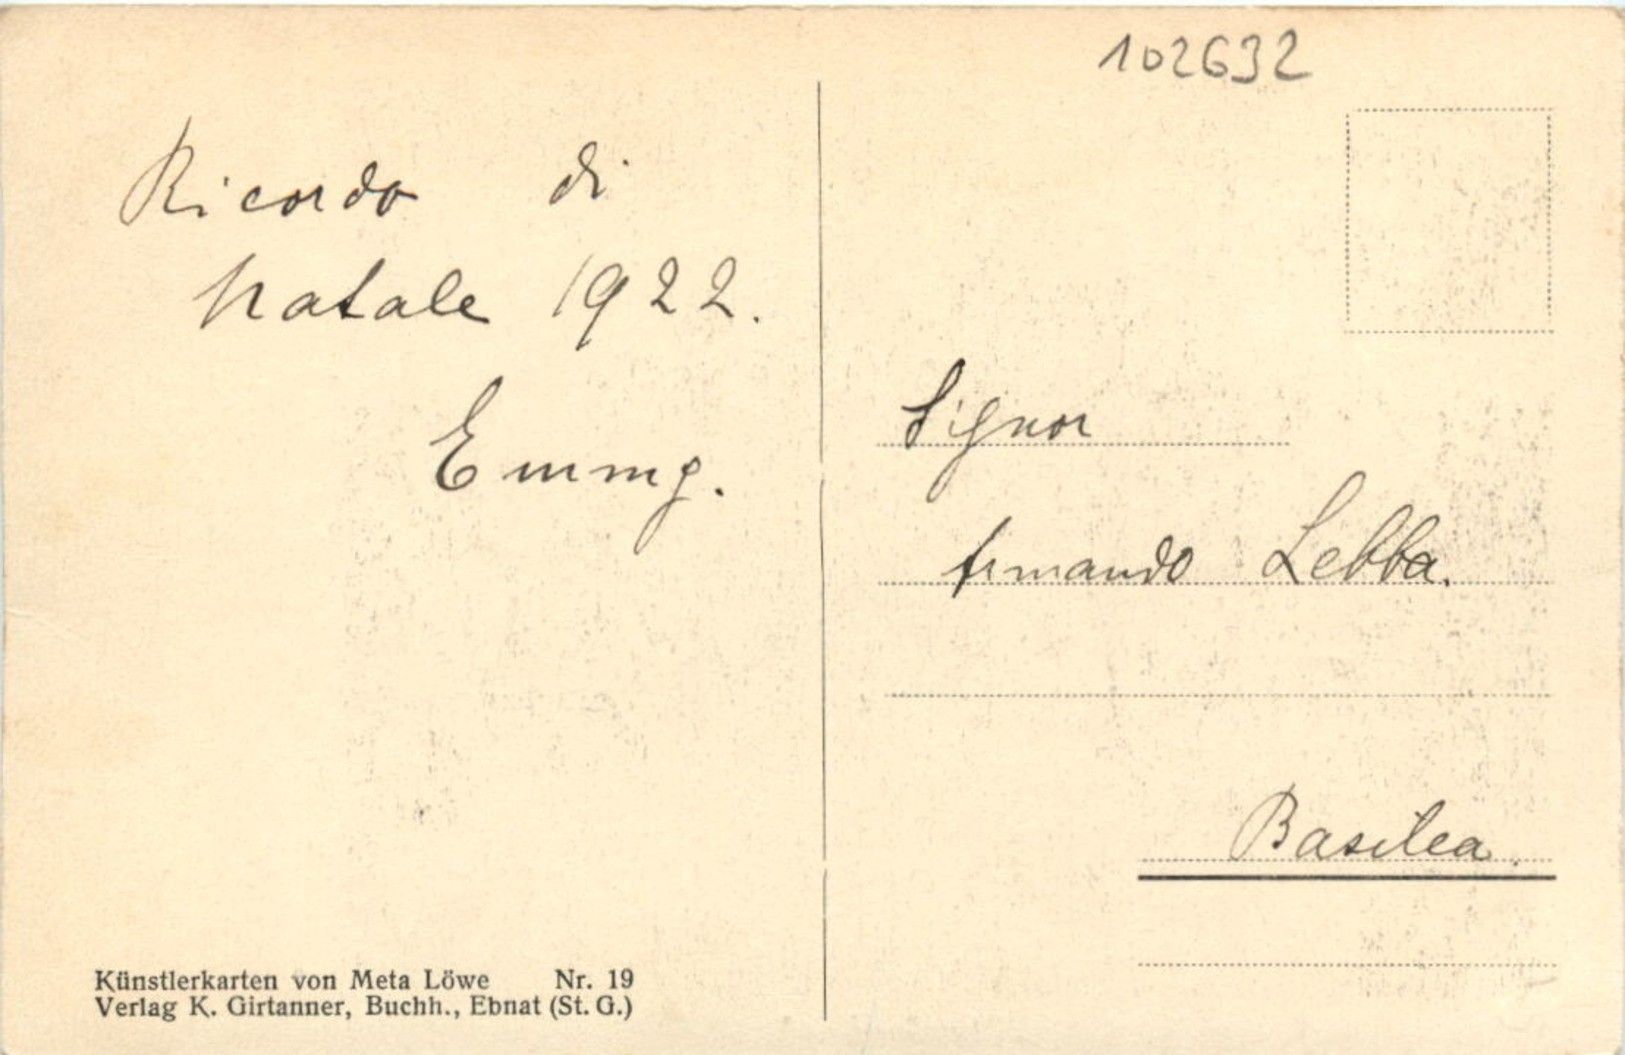 102632
Ricordo di
Natale 1922.
Emmy.
Signor
Armando Lebba.
Basilea.
Künstlerkarten von Meta Löwe Nr. 19
Verlag K. Girtanner, Buchh., Ebnat (St. G.)